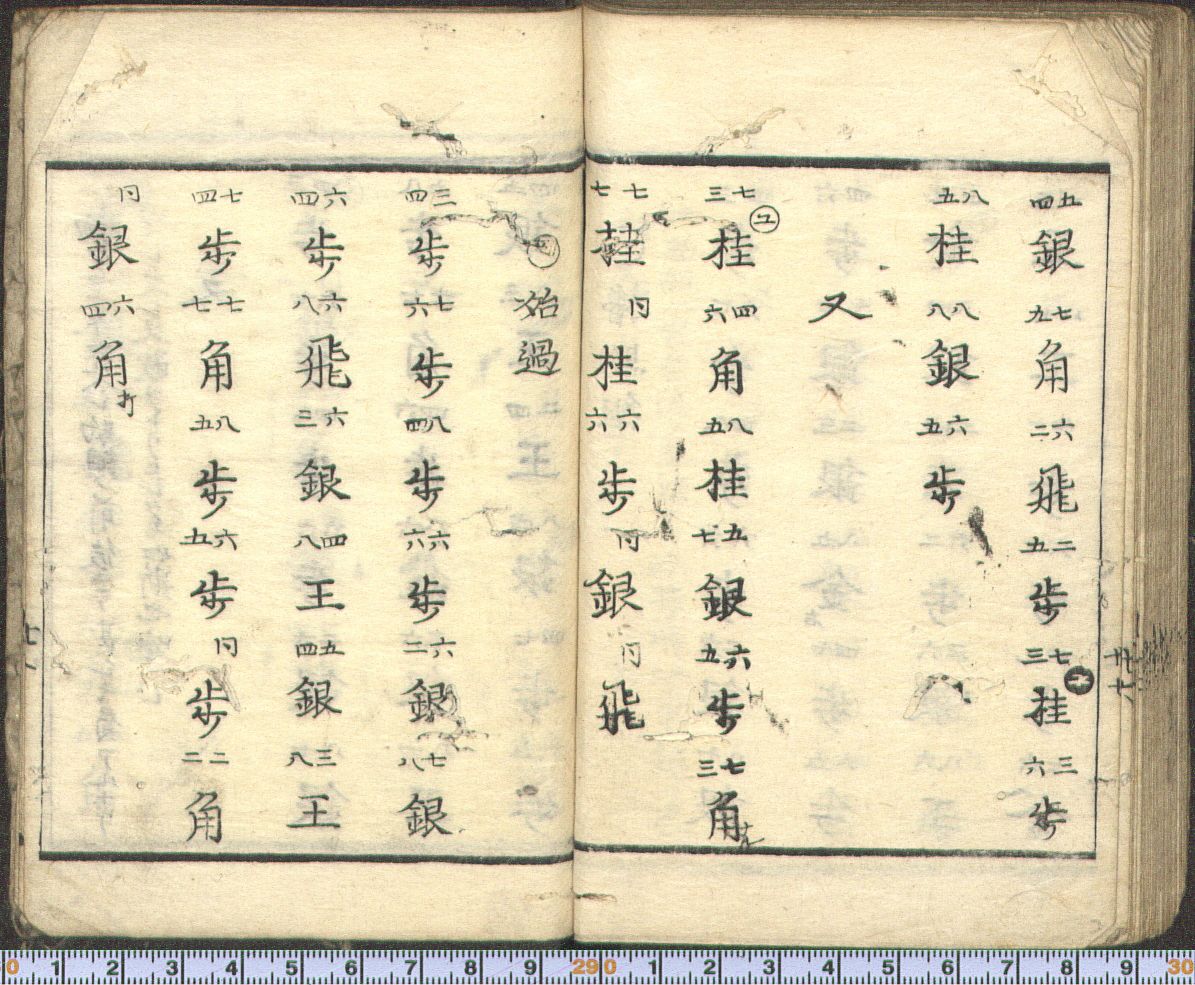 五四銀七九角六二飛二五歩七三桂三六歩
八五桂八八銀六五歩
又
七三桂ユ四六角八五桂五七銀六五歩七三角成
七七桂同桂六六歩同銀同飛
始過
三四歩七六歩八四歩六六歩六二銀七八銀
六四歩六八飛六三銀四八王五四銀三八王
七四歩七七角八五歩六五歩同歩二二角
同銀六四角打